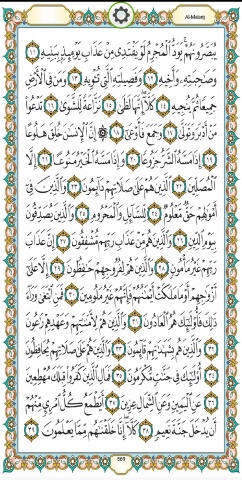 Al-Maarij
يُبَصَّرُونَهُمْ ۚ يَوَدُّ ٱلْمُجْرِمُ لَوْ يَفْتَدِى مِنْ عَذَابِ يَوْمِئِذٍۭ بِبَنِيهِ ١١
وَصَـٰحِبَتِهِۦ وَأَخِيهِ ١٢ وَفَصِيلَتِهِ ٱلَّتِى تُـْٔوِيهِ ١٣ وَمَن فِى ٱلْأَرْضِ
جَمِيعًا ثُمَّ يُنجِيهِ ١٤ كَلَّآ ۖ إِنَّهَا لَظَىٰ ١٥ نَزَّاعَةً لِّلشَّوَىٰ ١٦ تَدْعُوا۟
مَنْ أَدْبَرَ وَتَوَلَّىٰ ١٧ وَجَمَعَ فَأَوْعَىٰٓ ١٨ ۞ إِنَّ ٱلْإِنسَـٰنَ خُلِقَ هَلُوعًا
١٩ إِذَا مَسَّهُ ٱلشَّرُّ جَزُوعًا ٢٠ وَإِذَا مَسَّهُ ٱلْخَيْرُ مَنُوعًا ٢١ إِلَّا
ٱلْمُصَلِّينَ ٢٢ ٱلَّذِينَ هُمْ عَلَىٰ صَلَاتِهِمْ دَآئِمُونَ ٢٣ وَٱلَّذِينَ فِىٓ
أَمْوَٰلِهِمْ حَقٌّ مَّعْلُومٌ ٢٤ لِّلسَّآئِلِ وَٱلْمَحْرُومِ ٢٥ وَٱلَّذِينَ يُصَدِّقُونَ
بِيَوْمِ ٱلدِّينِ ٢٦ وَٱلَّذِينَ هُم مِّنْ عَذَابِ رَبِّهِم مُّشْفِقُونَ ٢٧ إِنَّ عَذَابَ
رَبِّهِمْ غَيْرُ مَأْمُونٍ ٢٨ وَٱلَّذِينَ هُمْ لِفُرُوجِهِمْ حَـٰفِظُونَ ٢٩ إِلَّا عَلَىٰٓ
أَزْوَٰجِهِمْ أَوْ مَا مَلَكَتْ أَيْمَـٰنُهُمْ فَإِنَّهُمْ غَيْرُ مَلُومِينَ ٣٠ فَمَنِ ٱبْتَغَىٰ وَرَآءَ
ذَٰلِكَ فَأُو۟لَـٰٓئِكَ هُمُ ٱلْعَادُونَ ٣١ وَٱلَّذِينَ هُمْ لِأَمَـٰنَـٰتِهِمْ وَعَهْدِهِمْ رَٰعُونَ
٣٢ وَٱلَّذِينَ هُم بِشَهَـٰدَٰتِهِمْ قَآئِمُونَ ٣٣ وَٱلَّذِينَ هُمْ عَلَىٰ صَلَاتِهِمْ يُحَافِظُونَ
٣٤ أُو۟لَـٰٓئِكَ فِى جَنَّـٰتٍ مُّكْرَمُونَ ٣٥ فَمَالِ ٱلَّذِينَ كَفَرُوا۟ قِبَلَكَ مُهْطِعِينَ
٣٦ عَنِ ٱلْيَمِينِ وَعَنِ ٱلشِّمَالِ عِزِينَ ٣٧ أَيَطْمَعُ كُلُّ ٱمْرِئٍ مِّنْهُمْ
أَن يُدْخَلَ جَنَّةَ نَعِيمٍ ٣٨ كَلَّآ ۖ إِنَّا خَلَقْنَـٰهُم مِّمَّا يَعْلَمُونَ ٣٩
569